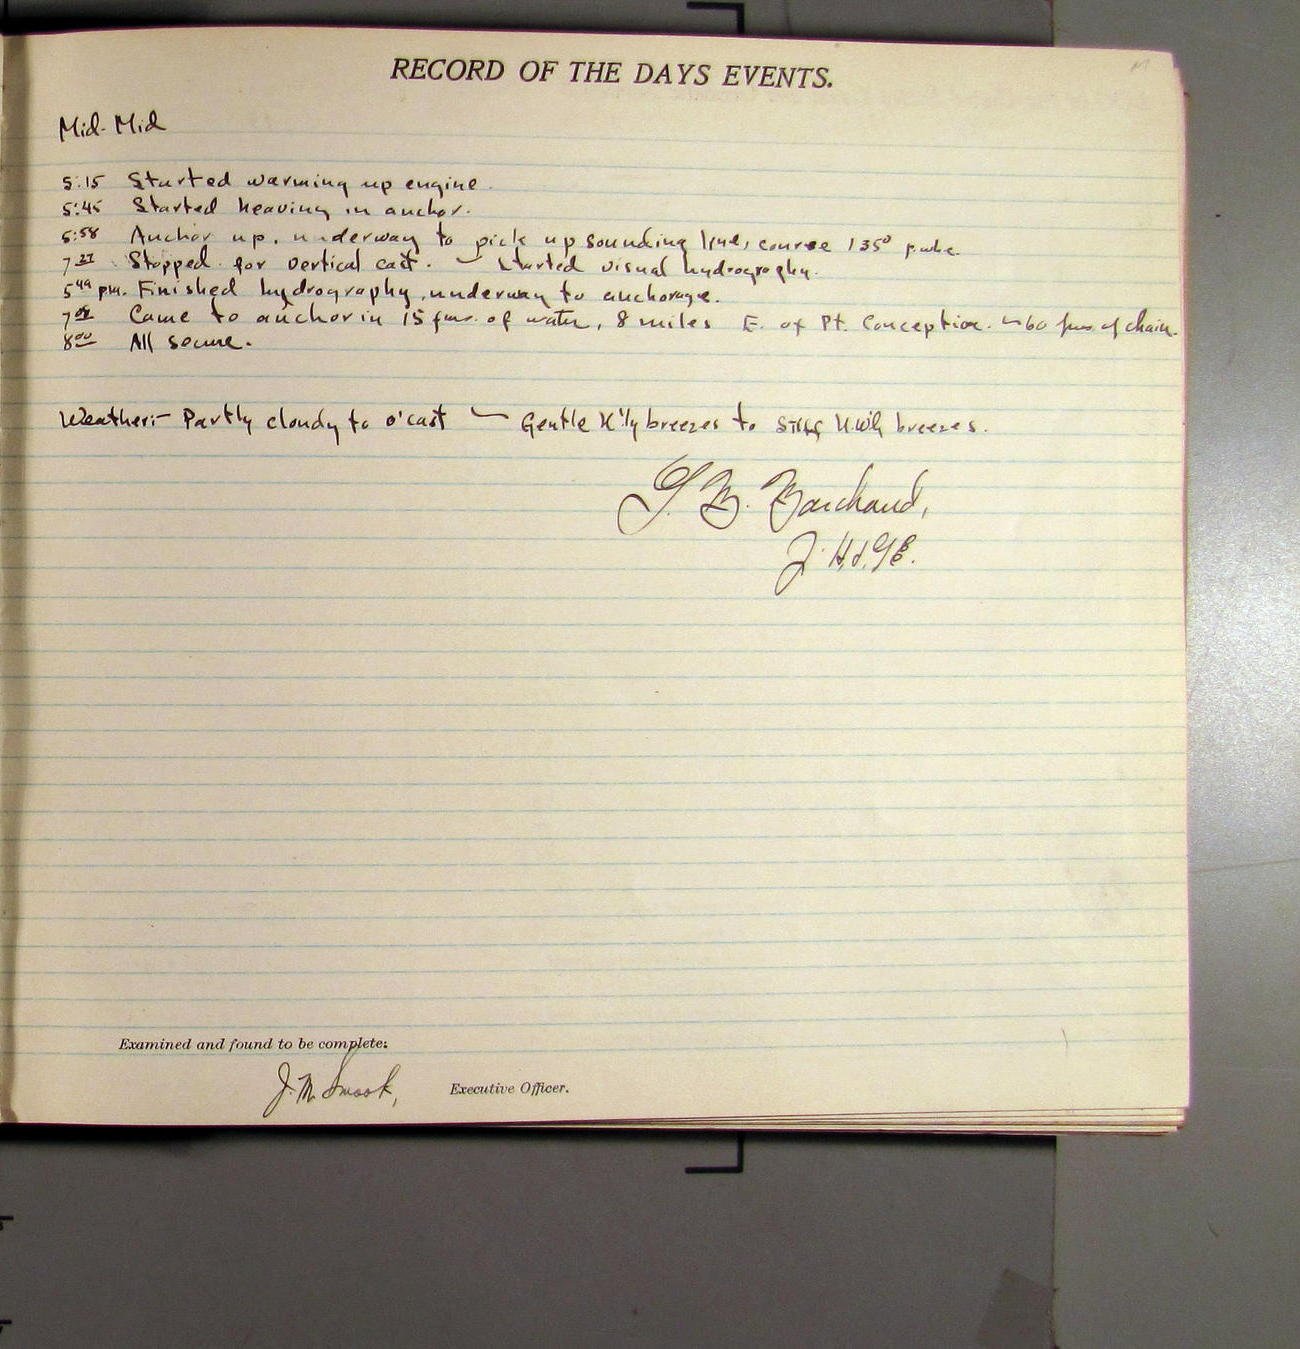 RECORD OF THE DAYS EVENTS.
Mid-Mid
5:15 Started warming up engine.
5:45 Started heaving in anchor.
5:58 Anchor up, underway to pick up sounding line, course 135°
7 27 Stopped for vertical cast. ~ Started visual hydrography.
5 49 pm. Finished hydrography, underway to anchorage.
7 08 Came to anchor in 15 fms. of water, 8 miles E. of Pt. Conception. ~ 60 fms. of chain.
8 00 All secure.
Weather:- Partly cloudy to o'cast ~ Gentle breezes to stiff breezes.
Examined and found to be complete:
J. M. Smook, Executive Officer.